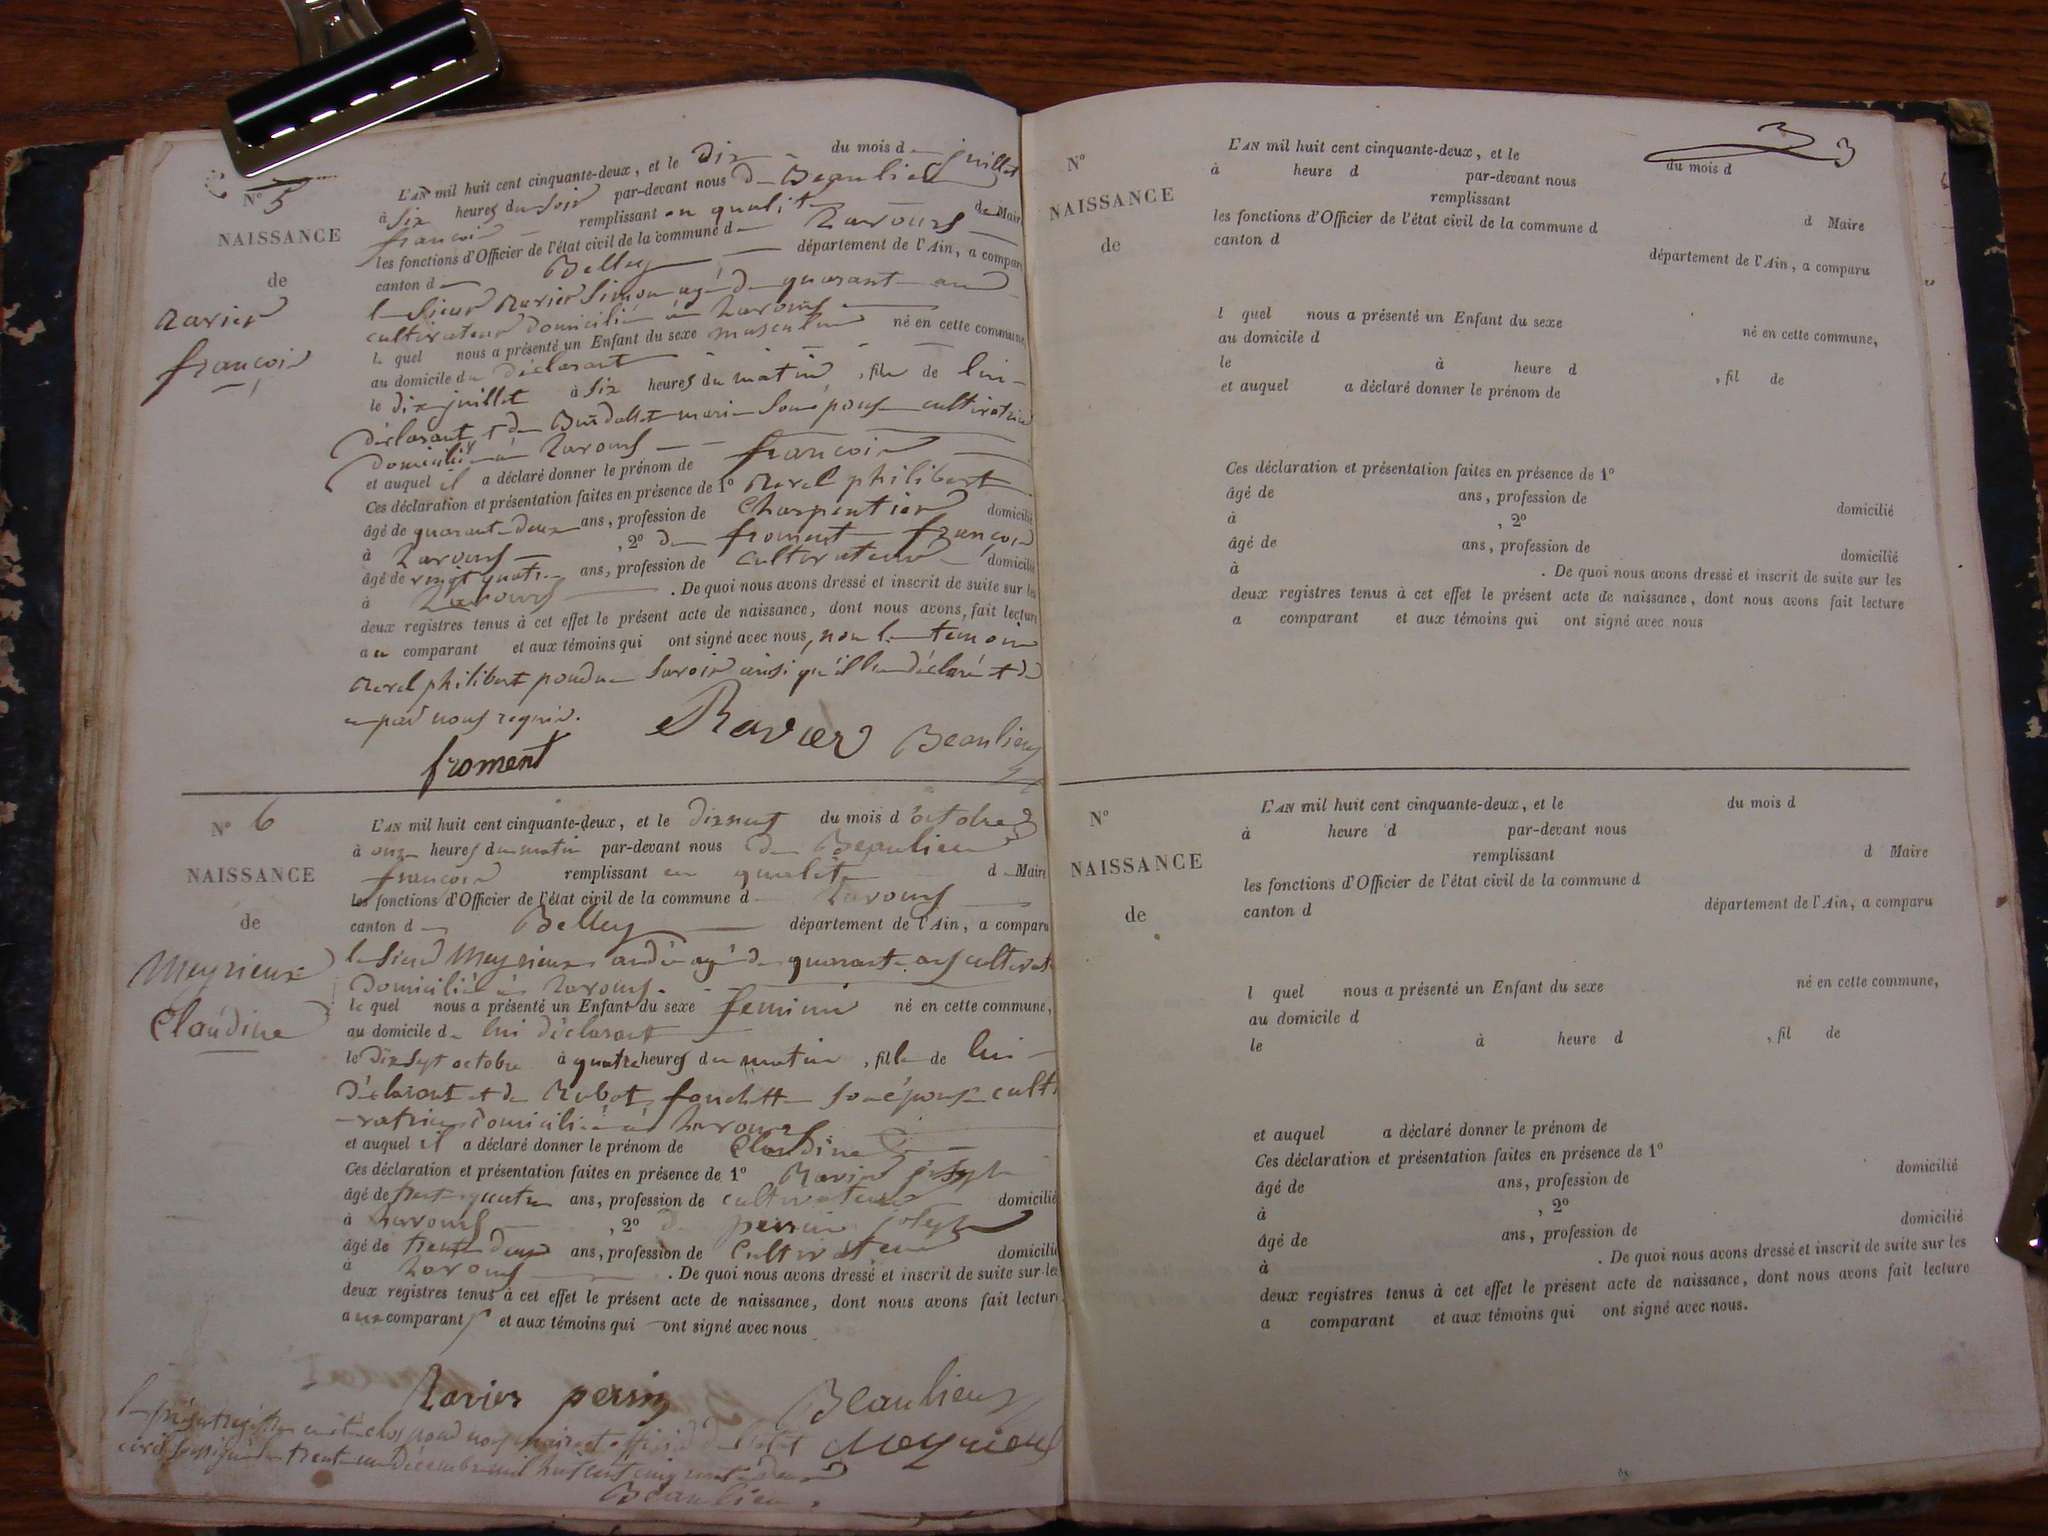 N° 5
NAISSANCE
de
Ravier
françois
L'AN mil huit cent cinquante-deux, et le dix du mois d juillet
à six heures du soir par-devant nous de Beaulieu
françois remplissant en qualité de Maire
les fonctions d'Officier de l'état civil de la commune de
canton de Belley département de l'Ain, a comparu
le sieur Ravier Simon agé de quarante ans
cultivateur domicilié à
le quel nous a présenté un Enfant du sexe masculin né en cette commune,
au domicile du déclarant
le dix juillet à six heures du matin, fils de lui
déclarant et de marie son épouse cultivatrice
domiciliée à
et auquel il a déclaré donner le prénom de françois
Ces déclaration et présentation faites en présence de 1° philibert
âgé de quarante deux ans, profession de Charpentier domicilié
à , 2° de froment françois
âgé de vingt quatre ans, profession de cultivateur domicilié
à . De quoi nous avons dressé et inscrit de suite sur les
deux registres tenus à cet effet le présent acte de naissance, dont nous avons fait lecture
au comparant et aux témoins qui ont signé avec nous, non le temoin
philibert pour ne savoir ainsi qu'il l'a déclaré de
ce par nous requis.
Ravier Beaulieu
froment
N° 6
NAISSANCE
de
Meyrieux
Claudine
L'AN mil huit cent cinquante-deux, et le dixneuf du mois d'octobre
à onze heures du matin par-devant nous de Beaulieu
françois remplissant en qualité de Maire
les fonctions d'Officier de l'état civil de la commune de
canton de Belley département de l'Ain, a comparu
le sieur Meyrieux andré agé de quarante ans cultivateur
domicilié à
le quel nous a présenté un Enfant du sexe feminin né en cette commune,
au domicile de lui déclarant
le dix sept octobre à quatre heures du matin, fille de lui
déclarant et de fanchette son épouse culti
-vatrice domiciliée à
et auquel il a déclaré donner le prénom de Claudine
Ces déclaration et présentation faites en présence de 1° Ravier joseph
âgé de trente quatre ans, profession de cultivateur domicilié
à , 2° de perrin joseph
âgé de trente deux ans, profession de Cultivateur domicilié
à . De quoi nous avons dressé et inscrit de suite sur les
deux registres tenus à cet effet le présent acte de naissance, dont nous avons fait lecture
aux comparants et aux témoins qui ont signé avec nous
Ravier perrin Beaulieu
Meyrieux
le présent registre a été clos par nous maire et officier de l'état
civil soussigné le trente un décembre mil huit cent cinquante deux
Beaulieu.
3
N°
NAISSANCE
de
L'AN mil huit cent cinquante-deux, et le du mois d
à heure d par-devant nous
remplissant d Maire
les fonctions d'Officier de l'état civil de la commune d
canton d département de l'Ain, a comparu
l quel nous a présenté un Enfant du sexe né en cette commune,
au domicile d
le à heure d , fil de
et auquel a déclaré donner le prénom de
Ces déclaration et présentation faites en présence de 1°
âgé de ans, profession de domicilié
à , 2°
âgé de ans, profession de domicilié
à . De quoi nous avons dressé et inscrit de suite sur les
deux registres tenus à cet effet le présent acte de naissance, dont nous avons fait lecture
a comparant et aux témoins qui ont signé avec nous
N°
NAISSANCE
de
L'AN mil huit cent cinquante-deux, et le du mois d
à heure d par-devant nous
remplissant d Maire
les fonctions d'Officier de l'état civil de la commune d
canton d département de l'Ain, a comparu
l quel nous a présenté un Enfant du sexe né en cette commune,
au domicile d
le à heure d , fil de
et auquel a déclaré donner le prénom de
Ces déclaration et présentation faites en présence de 1°
âgé de ans, profession de domicilié
à , 2°
âgé de ans, profession de domicilié
à . De quoi nous avons dressé et inscrit de suite sur les
deux registres tenus à cet effet le présent acte de naissance, dont nous avons fait lecture
a comparant et aux témoins qui ont signé avec nous.